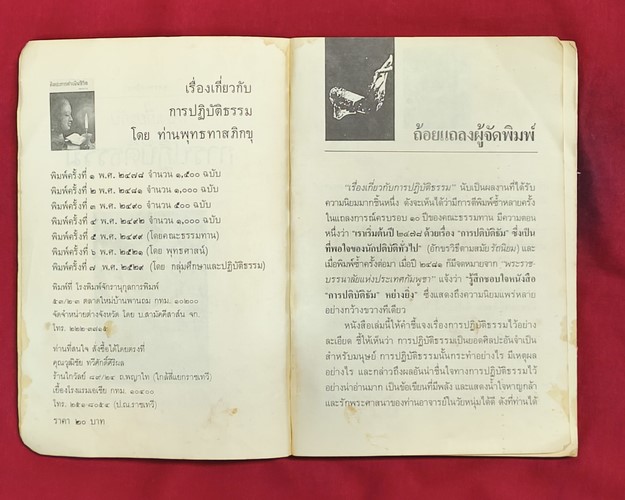 เรื่องเกี่ยวกับ
การปฏิบัติธรรม
โดย ท่านพุทธทาสภิกขุ
พิมพ์ครั้งที่ ๑ พ.ศ. ๒๔๗๘ จำนวน ๑,๕๐๐ ฉบับ
พิมพ์ครั้งที่ ๒ พ.ศ. ๒๔๘๑ จำนวน ๑,๐๐๐ ฉบับ
พิมพ์ครั้งที่ ๓ พ.ศ. ๒๔๙๐ จำนวน ๕๐๐ ฉบับ
พิมพ์ครั้งที่ ๔ พ.ศ. ๒๔๙๒ จำนวน ๑,๐๐๐ ฉบับ
พิมพ์ครั้งที่ ๕ พ.ศ. ๒๔๙๙ (โดยคณะธรรมทาน)
พิมพ์ครั้งที่ ๖ พ.ศ. ๒๕๒๑ (โดย พุทธศาสน์)
พิมพ์ครั้งที่ ๗ พ.ศ. ๒๕๒๙ (โดย กลุ่มศึกษาและปฏิบัติธรรม)
พิมพ์ที่ โรงพิมพ์จักรานุกูลการพิมพ์
๕๓/๒-๓ ตลาดใหม่บ้านพานถม กทม. ๑๐๒๐๐
จัดจำหน่ายต่างจังหวัด โดย บ.สามัคคีสาส์น จก.
โทร. ๒๒๒-๓๗๑๕
ท่านที่สนใจ สั่งซื้อได้โดยตรงที่
คุณวุฒิชัย ทวีศักดิ์ศิริผล
ร้านโกวัลย์ ๘๙/๒๔ ถ.พญาไท (ใกล้สี่แยกราชเทวี)
เยื้องโรงแรมเอเชีย กทม. ๑๐๔๐๐
โทร. ๒๕๑-๘๐๕๔ (ป.ณ.ราชเทวี)
ราคา ๒๐ บาท
ถ้อยแถลงผู้จัดพิมพ์
"เรื่องเกี่ยวกับการปฏิบัติธรรม" นับเป็นผลงานที่ได้รับ
ความนิยมมากชิ้นหนึ่ง ดังจะเห็นได้ว่ามีการตีพิมพ์ซ้ำหลายครั้ง
ในแถลงการณ์ครบรอบ ๑๐ ปีของคณะธรรมทาน มีความตอน
หนึ่งว่า "เราเริ่มต้นปี ๒๔๗๘ ด้วยเรื่อง "การปติบัติธัม" ซึ่งเป็น
ที่พอใจของนักปติบัติทั่วไป" (อักขรวิธีตามสมัยรัถนิยม) และ
เมื่อพิมพ์ซ้ำครั้งต่อมา เมื่อปี ๒๔๘๑ ก็มีจดหมายจาก "พระราช-
บรรณาลัยแห่งประเทศกัมพูชา" แจ้งว่า "รู้สึกชอบใจหนังสือ
"การปติบัติธัม" หย่างยิ่ง" ซึ่งแสดงถึงความนิยมแพร่หลาย
อย่างกว้างขวางทีเดียว
หนังสือเล่มนี้ให้คำชี้แจงเรื่องการปฏิบัติธรรมไว้อย่าง
ละเอียด ชี้ให้เห็นว่า การปฏิบัติธรรมเป็นยอดศิลปะอันจำเป็น
สำหรับมนุษย์ การปฏิบัติธรรมนั้นกระทำอย่างไร มีเหตุผล
อย่างไร และกล่าวถึงผลอันน่าชื่นใจทางการปฏิบัติธรรมไว้
อย่างน่าอ่านมาก เป็นข้อเขียนที่มีพลัง และแสดงน้ำใจหาญกล้า
และรักพระศาสนาของท่านอาจารย์ในวัยหนุ่มได้ดี ดังที่ท่านได้